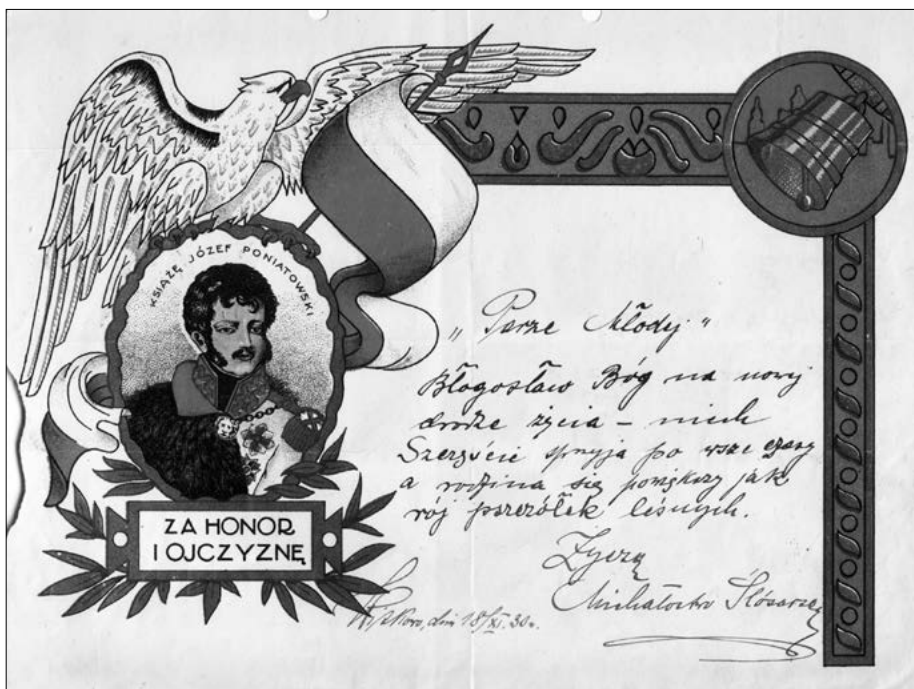 KSIĄŻĘ JÓZEF PONIATOWSKI
ZA HONOR
I OJCZYZNĘ
„Parze Młody"
Błogosław Bóg na nowy
drodze życia – niech
Szczęście spryja po wsze czasy
a rodzina się powiększy jak
rój pszczółek leśnych.
Życzą
Michałostwo
dn 18/XI. 30r.